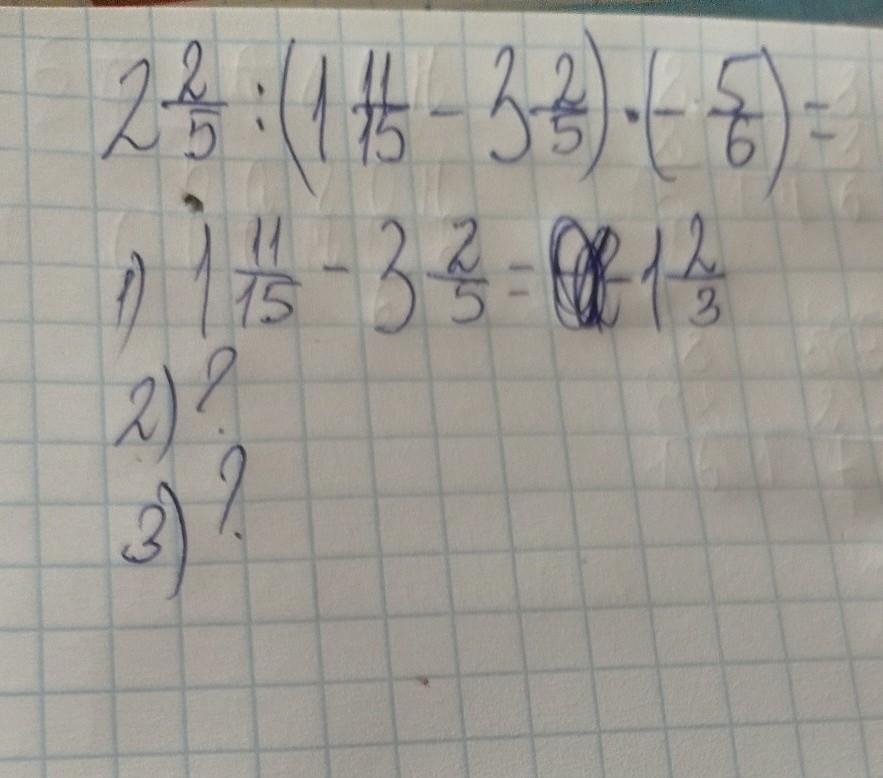 2 2/5 : (1 11/15 - 3 2/5) · (- 5/6) =
1) 1 11/15 - 3 2/5 = -1 2/3
2) ?
3) ?